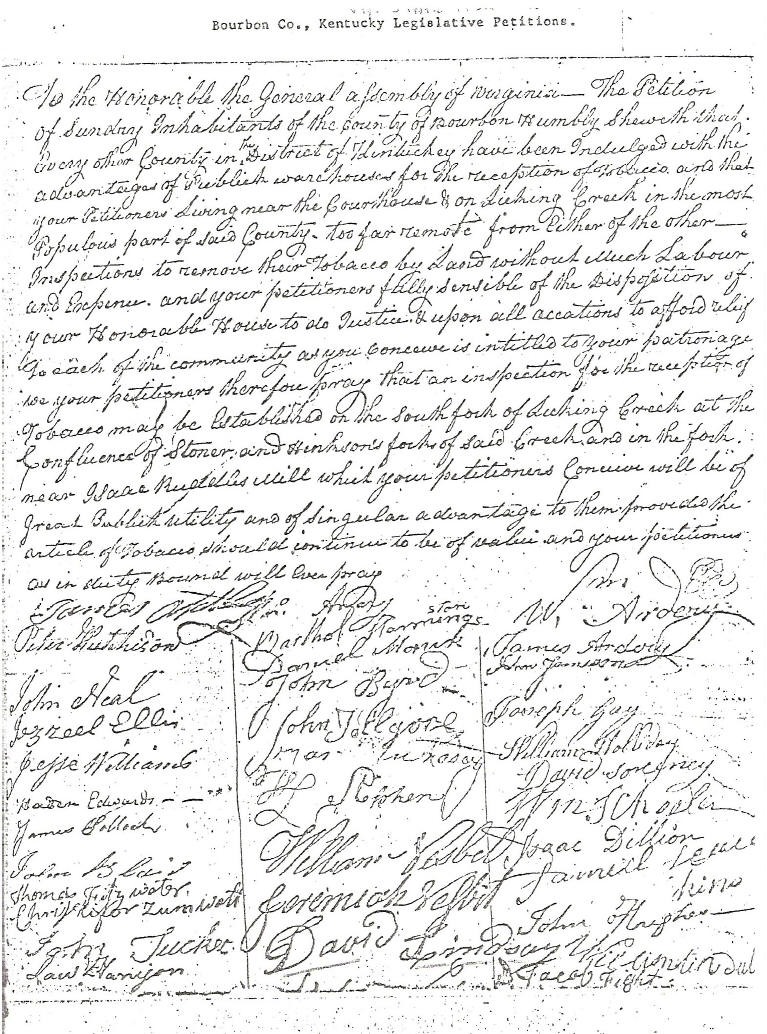 Bourbon Co., Kentucky Legislative Petitions.
To the Honorable the General assembly of Virginia — The Petition
of Sundry Inhabitants of the County of Bourbon Humbly Sheweth that
Every other County in the District of Kentuckey have been Indulged with the
advantages of Publick warehouses for the reception of Tobacco and that
your Petitioners Living near the Courthouse & on Licking Creek in the most
Populous part of said County - too far remote from Either of the other —
Inspections to remove their Tobacco by Land without Much Labour
and Expence. and your petitioners fully sensible of the Disposition of
your Honorable House to do Justice & upon all accations to afford relief
To each of the community as you Conceive is intitled to your patronage
we your petitioners therefore pray that an inspection for the reception of
Tobacco may be Established on the South fork of Licking Creek at the
Confluence of Stoner and Hinkson's forks of said Creek and in the fork
near Isaac Ruddles Mill which your petitioners Conceive will be of
Great Publick utility and of singular advantage to them provided the
article of Tobacco should continue to be of value and your petitioners
as in duty Bound will Ever pray
Peter Hutchison
John Neal
Jezzeel Ellis
Jesse Williams
Baden Edwards
James Pollock
John Blair
Thomas Fitzwater
Christifor Zumwalt
John Tucker
Daniel
John Byrd
John Kilgore
Stephen
William Nesbit
Jeremiah Nesbit
David Lindsay
W. Ardery
James Ardery
John Jameson
Joseph Gay
William Holliday
David
Wm Schooler
Isaac Dillion
John Hughes
Jacob Fight